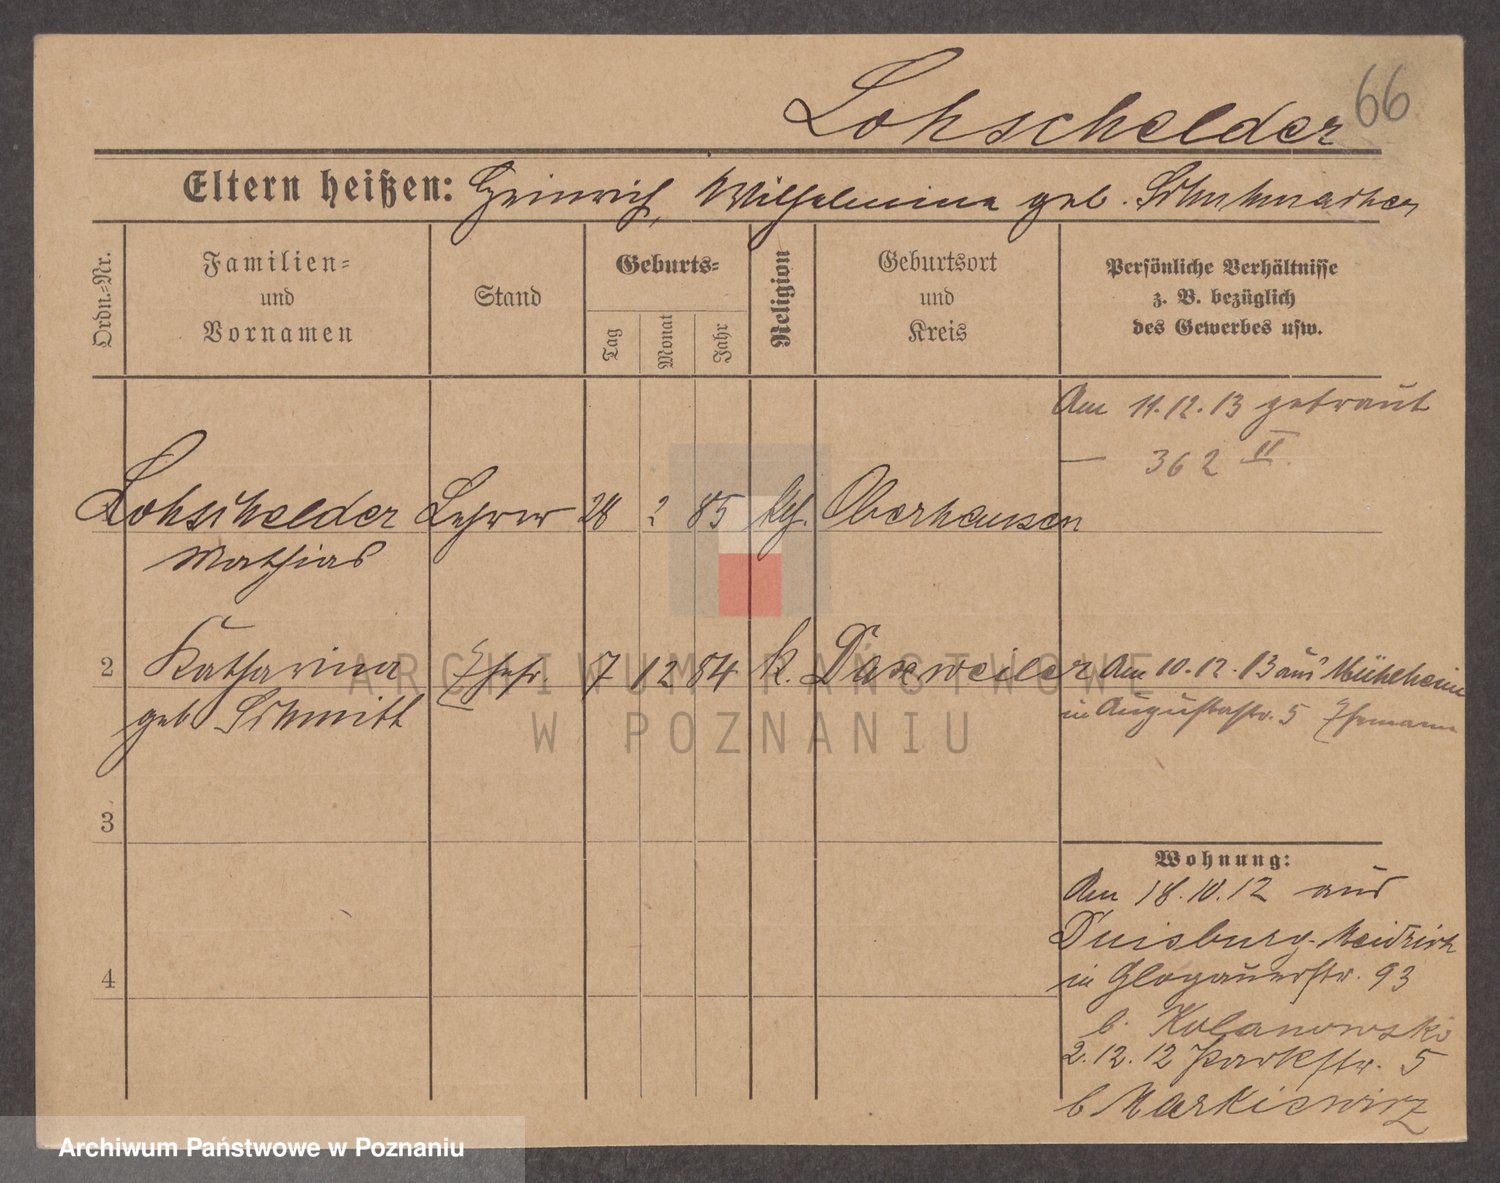 66
Lohschelder
Eltern heißen: Heinrich, Wilhelmine geb. Schuhmacher
Ordn.-Nr.
Familien-
und
Vornamen
Stand
Geburts-
Tag
Monat
Jahr
Religion
Geburtsort
und
Kreis
Persönliche Verhältnisse
z. B. bezüglich
des Gewerbes usw.
Am 11.12.13 getraut
— 362 II.
Lohschelder Lehrer 28 2 85 kth. Oberhausen
Mathias
2 Katharina Ehefr. 7 12 84 k. Daxweiler Am 10.12.13 aus Mühlheim
geb Schmitt in Augustastr. 5 Ehemann
3
Wohnung:
Am 18.10.12 aus
Duisburg-Meidrich
4
in Glogauerstr. 93
b. Kolanowski
2.12.12 Parkstr. 5
b Markiewicz
ARCHIWUM PAŃSTWOWE
W POZNANIU
Archiwum Państwowe w Poznaniu